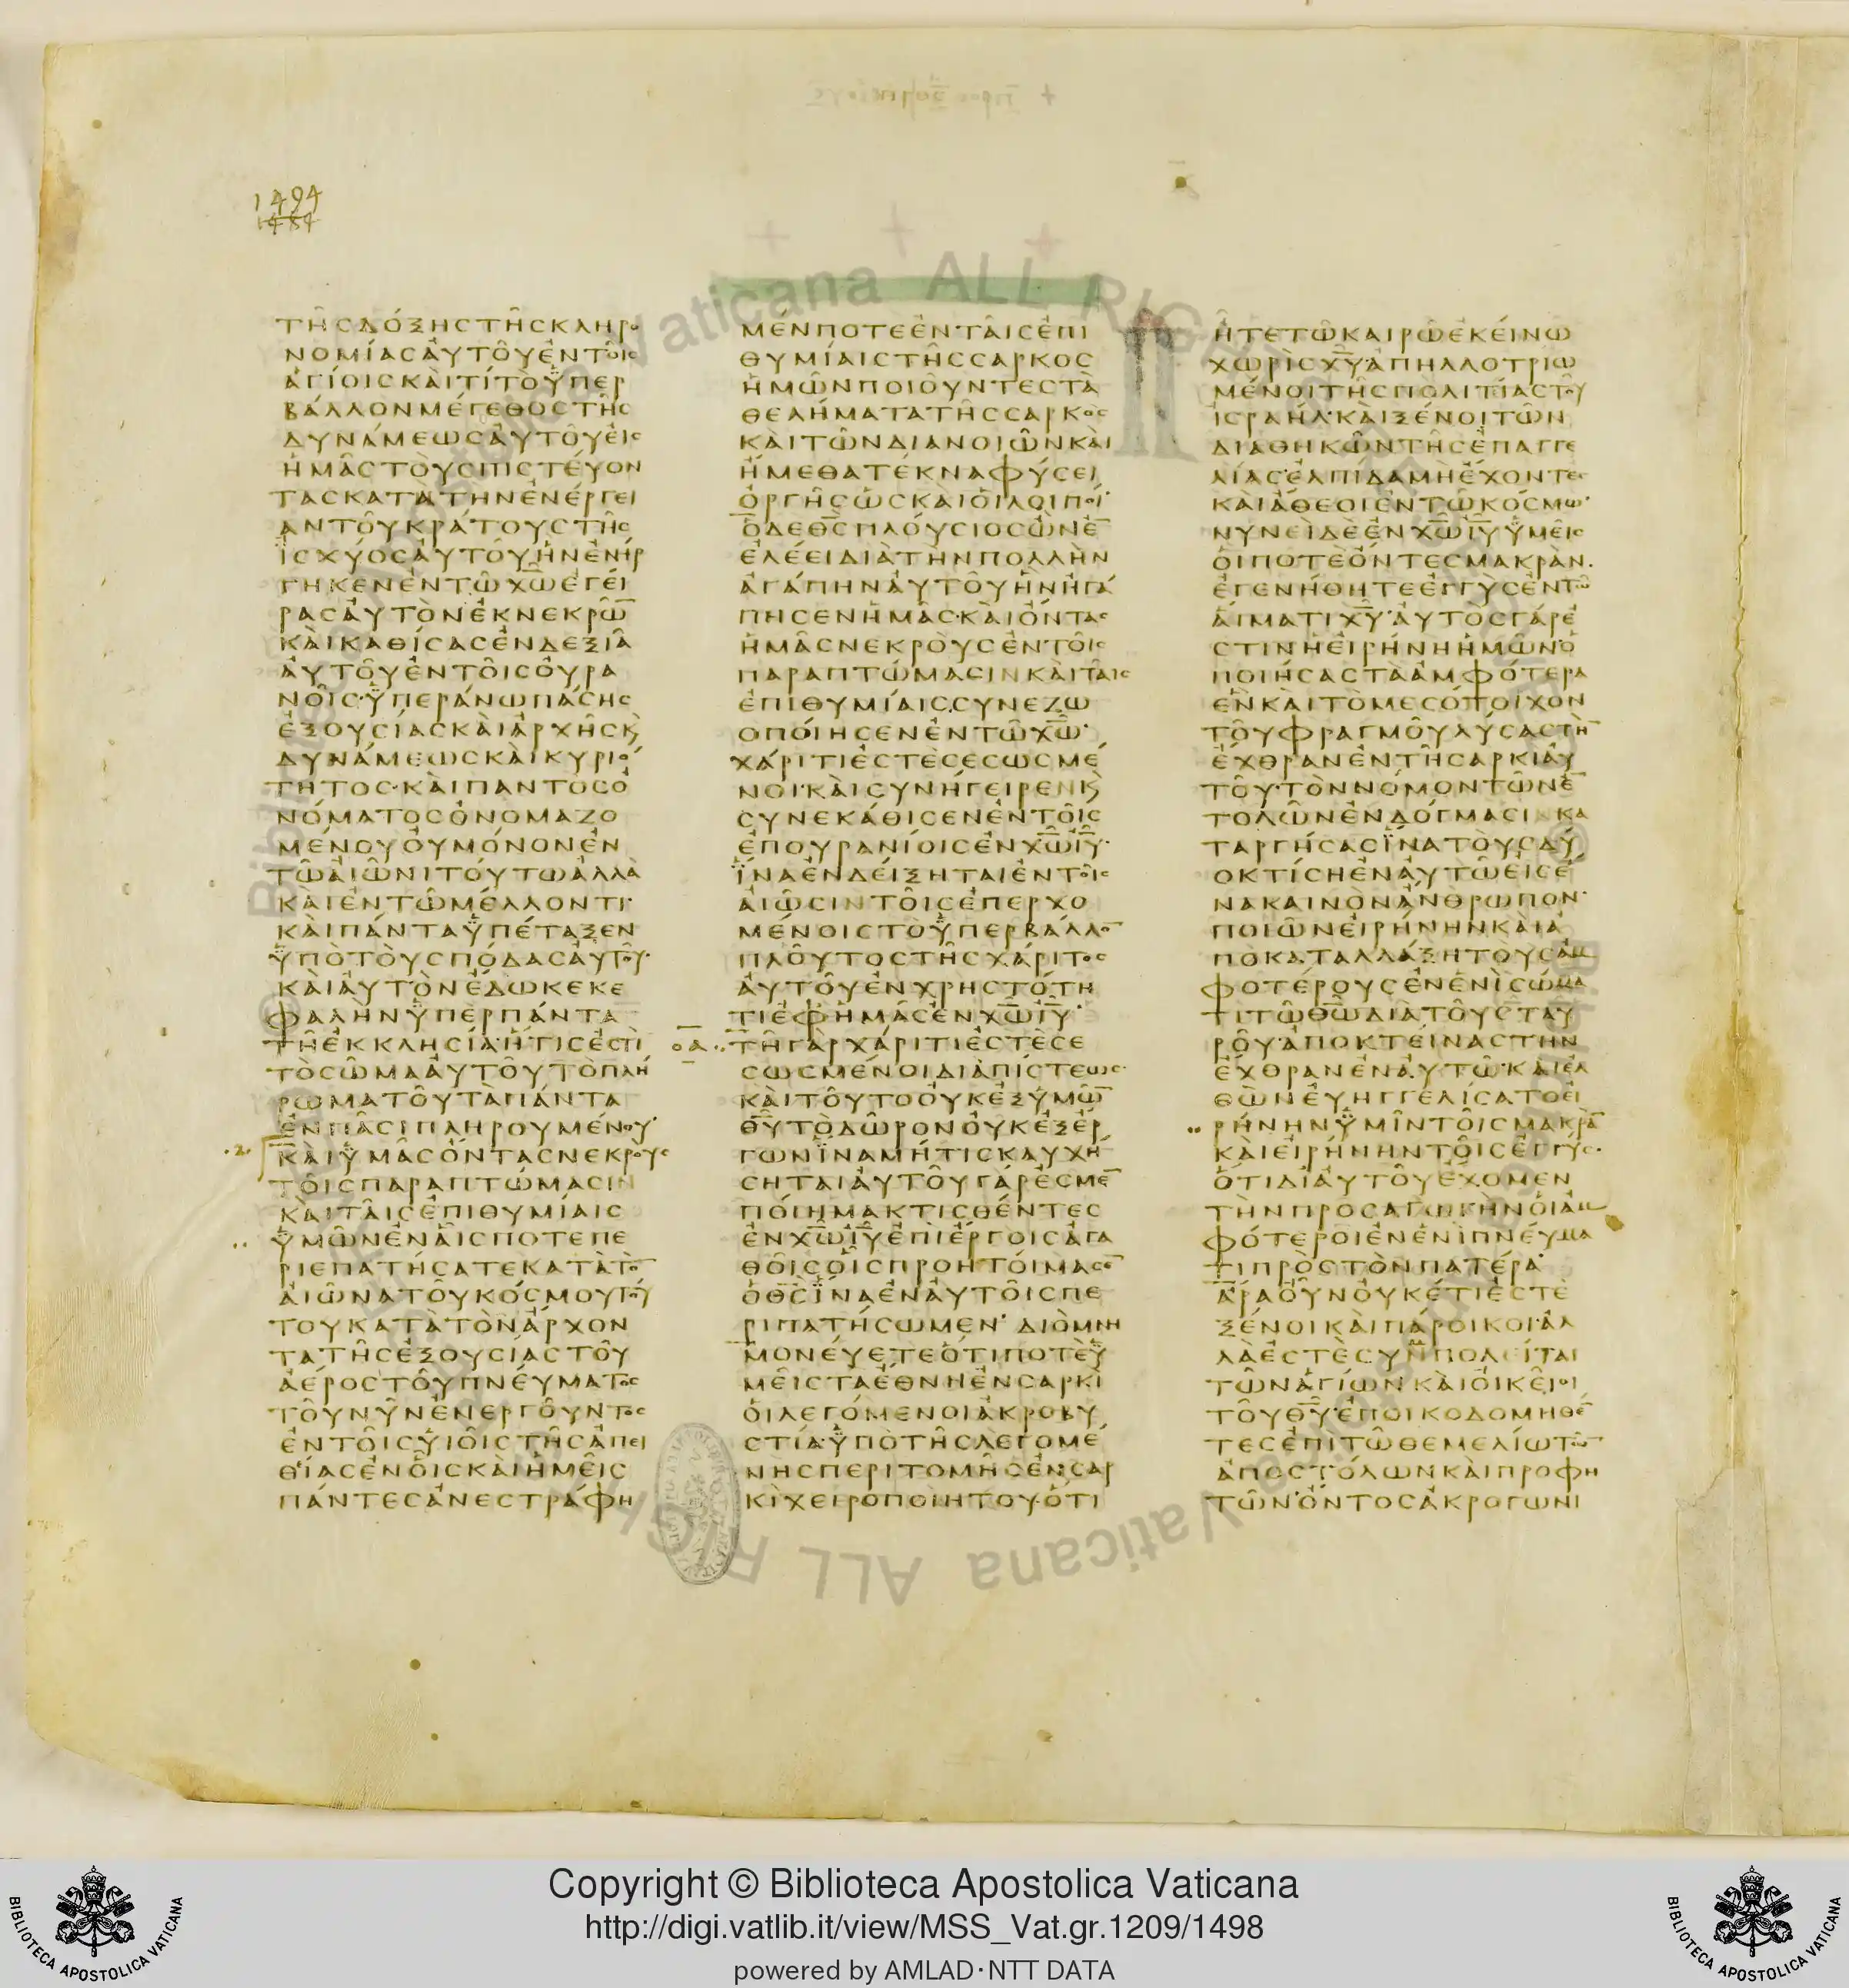 1494
1484
ΤΗ͂ϹΔΌΞΗϹΤΗ͂ϹΚΛΗΡΟ
ΝΟΜΊΑϹἈΥΤΟΥ͂ἘΝΤΟΙ͂Ϲ
ἉΓΊΟΙϹΚΑῚΤΊΤῸὙΠΕΡ
ΒΆΛΛΟΝΜΈΓΕΘΟϹΤΗ͂Ϲ
ΔΥΝΆΜΕΩϹἈΥΤΟΥ͂ἘΙϹ
ἩΜΑ͂ϹΤΟῪϹΠΙϹΤΈΥΟΝ
ΤΑϹΚΑΤᾺΤΗΝἘΝΈΡΓΕΙ
ΑΝΤΟΥ͂ΚΡΆΤΟΥϹΤΗ͂Ϲ
ἸϹΧΎΟϹἈΥΤΟΥ͂ἫΝἘΝΉΡ
ΓΗΚΕΝἘΝΤΩ͂Χ̅Ω̅ἘΓΕΊ
ΡΑϹἈΥΤῸΝἘΚΝΕΚΡΩ̅
ΚΑῚΚΑΘΊϹΑϹἘΝΔΕΞΙΑ͂
ἈΥΤΟΥ͂ἘΝΤΟΙ͂ϹΟΥ̓ΡΑ
ΝΟΙ͂Ϲ·ὙΠΕΡΆΝΩΠΆϹΗϹ
ἘΞΟΥϹΊΑϹΚΑῚἈΡΧΗ͂ϹΚ
ΔΥΝΆΜΕΩϹΚΑῚΚΥΡΙΌ
ΤΗΤΟϹ·ΚΑῚΠΑΝΤΟϹὈ
ΝΌΜΑΤΟϹὈΝΟΜΑΖΟ
ΜΈΝΟΥΟΥ̓ΜΌΝΟΝἘΝ
ΤΩ͂ἈΙΩ͂ΝΙΤΟΎΤΩἈΛΛᾺ
ΚΑῚἘΝΤΩ͂ΜΈΛΛΟΝΤΙ·
ΚΑῚΠΆΝΤΑὙΠΈΤΑΞΕΝ
ὙΠῸΤΟῪϹΠΌΔΑϹἈΥΤΟΥ͂·
ΚΑῚἈΥΤῸΝἜΔΩΚΕΚΕ
ΦΑΛΗΝὙΠΕΡΠΆΝΤΑ
ΤΗ͂ἘΚΚΛΗϹΊΑ·ἭΤΙϹἘϹΤῚ
ΤῸϹΩ͂ΜΑἈΥΤΟΥ͂ΤῸΠΛΉ
ΡΩΜΑΤΟΥ͂ΤᾺΠΆΝΤΑ
ἘΝΠΑ͂ϹΙΠΛΗΡΟΥΜΈΝΟΥ·
ΚΑῚὙΜΑ͂ϹὌΝΤΑϹΝΕΚΡΟΥϹ
ΤΟΙ͂ϹΠΑΡΑΠΤΏΜΑϹΙΝ
ΚΑῚΤΑΙ͂ϹἘΠΙΘΥΜΊΑΙϹ
ὙΜΩ͂ΝἘΝΑἿϹΠΟΤΕΠΕ
ΡΙΕΠΑΤΉϹΑΤΕΚΑΤᾺΤΟ̅
ἈΙΩ͂ΝΑΤΟΥ͂ΚΌϹΜΟΥΤΟΎ
ΤΟΥΚΑΤᾺΤῸΝἌΡΧΟΝ
ΤΑΤΗ͂ϹἘΞΟΥϹΊΑϹΤΟΥ͂
ἈΈΡΟϹΤΟΥ͂ΠΝΕΎΜΑΤΟϹ
ΤΟΥ͂ΝΥ͂ΝἘΝΕΡΓΟΥ͂ΝΤΟϹ
ἘΝΤΟΙ͂ϹΥἹΟΙ͂ϹΤΗ͂ϹἈΠΕΙ
ΘΊΑϹἘΝΟἿϹΚΑῚἩΜΕΙ͂Ϲ
ΠΆΝΤΕϹἈΝΕϹΤΡΆΦΗ
ΜΈΝΠΟΤΕἘΝΤΑΙ͂ϹἘΠΙ
ΘΥΜΊΑΙϹΤΗ͂ϹϹΑΡΚΟϹ
ἩΜΩ͂ΝΠΟΙΟΥ͂ΝΤΕϹΤᾺ
ΘΕΛΉΜΑΤΑΤΗ͂ϹϹΑΡΚΟϹ
ΚΑῚΤΩ͂ΝΔΙΑΝΟΙΩ͂ΝΚΑῚ
ἬΜΕΘΑΤΈΚΝΑΦΎϹΕΙ
ὈΡΓΗ͂ϹὩϹΚΑῚΟἹΛΟΙΠΟΊ·
ὉΔΕΘ̅Ϲ̅ΠΛΟΎϹΙΟϹὢΝἘ̅
ἘΛΈΕΙΔΙᾺΤῊΝΠΟΛΛῊΝ
ἈΓΆΠΗΝἈΥΤΟΥ͂ἫΝἨΓΆ
ΠΗϹΕΝἩΜΑ͂Ϲ·ΚΑῚὌΝΤΑϹ
ἩΜΑ͂ϹΝΕΚΡΟῪϹἘΝΤΟΙ͂Ϲ
ΠΑΡΑΠΤΏΜΑϹΙΝΚΑῚΤΑΙ͂Ϲ
ἘΠΙΘΥΜΊΑΙϹϹΥΝΕΖΩ
ΟΠΟΊΗϹΕΝἘΝΤΩ͂Χ̅Ω̅·
ΧΆΡΙΤΙἘϹΤῈϹΕϹΩϹΜΈ
ΝΟΙ·ΚΑῚϹΥΝΉΓΕΙΡΕΝΚ
ϹΥΝΕΚΆΘΙϹΕΝἘΝΤΟΙ͂Ϲ
ἘΠΟΥΡΑΝΊΟΙϹἘΝΧ̅Ω̅Ι̅Υ̅·
ἽΝΑἘΝΔΕΊΞΗΤΑΙἘΝΤΟΙ͂Ϲ
ἈΙΩ͂ϹΙΝΤΟΙ͂ϹἘΠΕΡΧΟ
ΜΈΝΟΙϹΤῸὙΠΕΡΒΆΛΛΟ̅
ΠΛΟΥ͂ΤΟϹΤΗ͂ϹΧΆΡΙΤΟϹ
ἈΥΤΟΥ͂ἘΝΧΡΗϹΤΌΤΗ
ΤΙἘΦἩΜΑ͂ϹἘΝΧ̅Ω̅Ι̅Υ̅·
ΟΑ ΤΗ͂ΓᾺΡΧΆΡΙΤΙἘϹΤῈϹΕ
ϹΩϹΜΈΝΟΙΔΙᾺΠΊϹΤΕΩϹ·
ΚΑῚΤΟΥ͂ΤΟΟΥ̓ΚἘΞὙΜΩ̅
Θ̅Υ̅ΤῸΔΩ͂ΡΟΝΟΥ̓ΚἘΞἘΡ
ΓΩΝἽΝΑΜΉΤΙϹΚΑΥΧΉ
ϹΗΤΑΙἈΥΤΟΥ͂ΓΆΡἘϹΜΕ̅
ΠΟΊΗΜΑΚΤΙϹΘΈΝΤΕϹ
ἘΝΧ̅Ω̅Ι̅Υ̅ἘΠῚἜΡΓΟΙϹἈΓΑ
ΘΟΙ͂ϹΟἿϹΠΡΟΗΤΟΊΜΑϹΕ̅
ὉΘ̅Ϲ̅ἽΝΑἘΝἈΥΤΟΙ͂ϹΠΕ
ΡΙΠΑΤΉϹΩΜΕΝ· ΔΙῸΜΝΗ
ΜΟΝΕΎΕΤΕὍΤΙΠΟΤῈὙ
ΜΕΙ͂ϹΤΑἜΘΝΗἘΝϹΑΡΚῚ
ΟἹΛΕΓΌΜΕΝΟΙἈΚΡΟΒΥ
ϹΤΊΑ·ὙΠῸΤΗ͂ϹΛΕΓΟΜΈ
ΝΗϹΠΕΡΙΤΟΜΗ͂ϹἘΝϹΑΡ
ΚῚΧΕΙΡΟΠΟΙΉΤΟΥ·ὍΤΙ
ἮΤΕΤΩ͂ΚΑΙΡΩ͂ἘΚΕΊΝΩ
ΧΩΡῚϹΧ̅Υ̅·ἈΠΗΛΛΟΤΡΙΩ
ΜΈΝΟΙΤΗ͂ϹΠΟΛΙΤΊΑϹΤΟΥ͂
ἸϹΡΑΉΛ·ΚΑῚΞΈΝΟΙΤΩ͂Ν
ΔΙΑΘΗΚΩ͂ΝΤΗ͂ϹἘΠΑΓΓΕ
ΛΊΑϹἘΛΠΊΔΑΜῊἜΧΟΝΤΕϹ
ΚΑῚἌΘΕΟΙἘΝΤΩ͂ΚΌϹΜΩ·
ΝΥΝΕῚΔῈἘΝΧ̅Ω̅Ι̅Υ̅ὙΜΕΙ͂Ϲ
ΟἹΠΟΤῈὌΝΤΕϹΜΑΚΡᾺΝ.
ἘΓΕΝΉΘΗΤΕἘΓΓῪϹἘΝΤΩ͂
ἉΊΜΑΤΙΧ̅Υ̅·ἈΥΤῸϹΓΆΡἘ
ϹΤΙΝἩἘΙΡΉΝΗἩΜΩ͂ΝὉ
ΠΟΙΉϹΑϹΤᾺἈΜΦΌΤΕΡΑ
ἛΝΚΑῚΤῸΜΕϹΌΤΟΙΧΟΝ
ΤΟΥ͂ΦΡΑΓΜΟΥ͂ΛΎϹΑϹΤῊ̅
ἜΧΘΡΑΝἘΝΤΗ͂ϹΑΡΚῚἈΥ
ΤΟΥ͂·ΤῸΝΝΌΜΟΝΤΩ͂ΝἘ̅
ΤΟΛΩ͂ΝἘΝΔΌΓΜΑϹΙΝΚΑ
ΤΑΡΓΉϹΑϹἽΝΑΤΟῪϹΔΎ
ΟΚΤΊϹΗἘΝἈΥΤΩ͂ἘΙϹἝ
ΝΑΚΑΙΝῸΝἌΝΘΡΩΠΟΝ·
ΠΟΙΩ͂ΝἘΙΡΉΝΗΝΚΑῚἈ
ΠΟΚΑΤΑΛΛΆΞΗΤΟῪϹἈΜ
ΦΟΤΈΡΟΥϹἘΝἙΝῚϹΏΜΑ
ΤΙΤΩ͂Θ̅Ω̅ΔΙᾺΤΟΥ͂ϹΤΑΥ
ΡΟΥ͂·ἈΠΟΚΤΕΊΝΑϹΤΗΝ
ἜΧΘΡΑΝἘΝἈΥΤΩ͂·ΚΑῚἘΛ
ΘῺΝἘΥΗΓΓΕΛΊϹΑΤΟἘΙ
ΡΉΝΗΝὙΜΙ͂ΝΤΟΙ͂ϹΜΑΚΡᾺ̅
ΚΑῚἘΙΡΉΝΗΝΤΟΙ͂ϹἘΓΓΎϹ·
ὍΤΙΔΙἈΥΤΟΥ͂ἜΧΟΜΕΝ
ΤῊΝΠΡΟϹΑΓΩΓῊΝΟἹἈΜ
ΦΌΤΕΡΟΙἘΝἙΝῚΠΝΕΎΜΑ
ΤΙΠΡῸϹΤῸΝΠΑΤΈΡΑ·
ἌΡΑΟΥ͂ΝΟΥ̓ΚΈΤΙἘϹΤῈ
ΞΈΝΟΙΚΑῚΠΆΡΟΙΚΟΙ·ἈΛ
ΛᾺἘϹΤῈϹΥΜΠΟΛΕΊΤΑΙ
ΤΩ͂ΝἉΓΊΩΝΚΑῚὈΙΚΕΙ͂ΟΙ
ΤΟΥ͂Θ̅Υ̅·ἘΠΟΙΚΟΔΟΜΗΘΕ̅
ΤΕϹἘΠῚΤΩ͂ΘΕΜΕΛΊΩΤΩ̅
ἈΠΟϹΤΌΛΩΝΚΑῚΠΡΟΦΗ
ΤΩ͂Ν·ὌΝΤΟϹἈΚΡΟΓΩΝΙ
Copyright © Biblioteca Apostolica Vaticana
http://digi.vatlib.it/view/MSS_Vat.gr.1209/1498
powered by AMLAD·NTT DATA
BIBLIOTECA APOSTOLICA VATICANA
BIBLIOTECA APOSTOLICA VATICANA